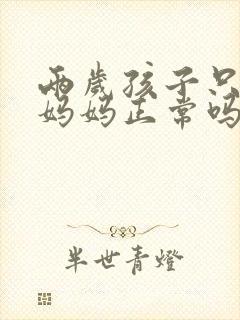 兩歲孩子只
妈妈正常吗
半世青燈